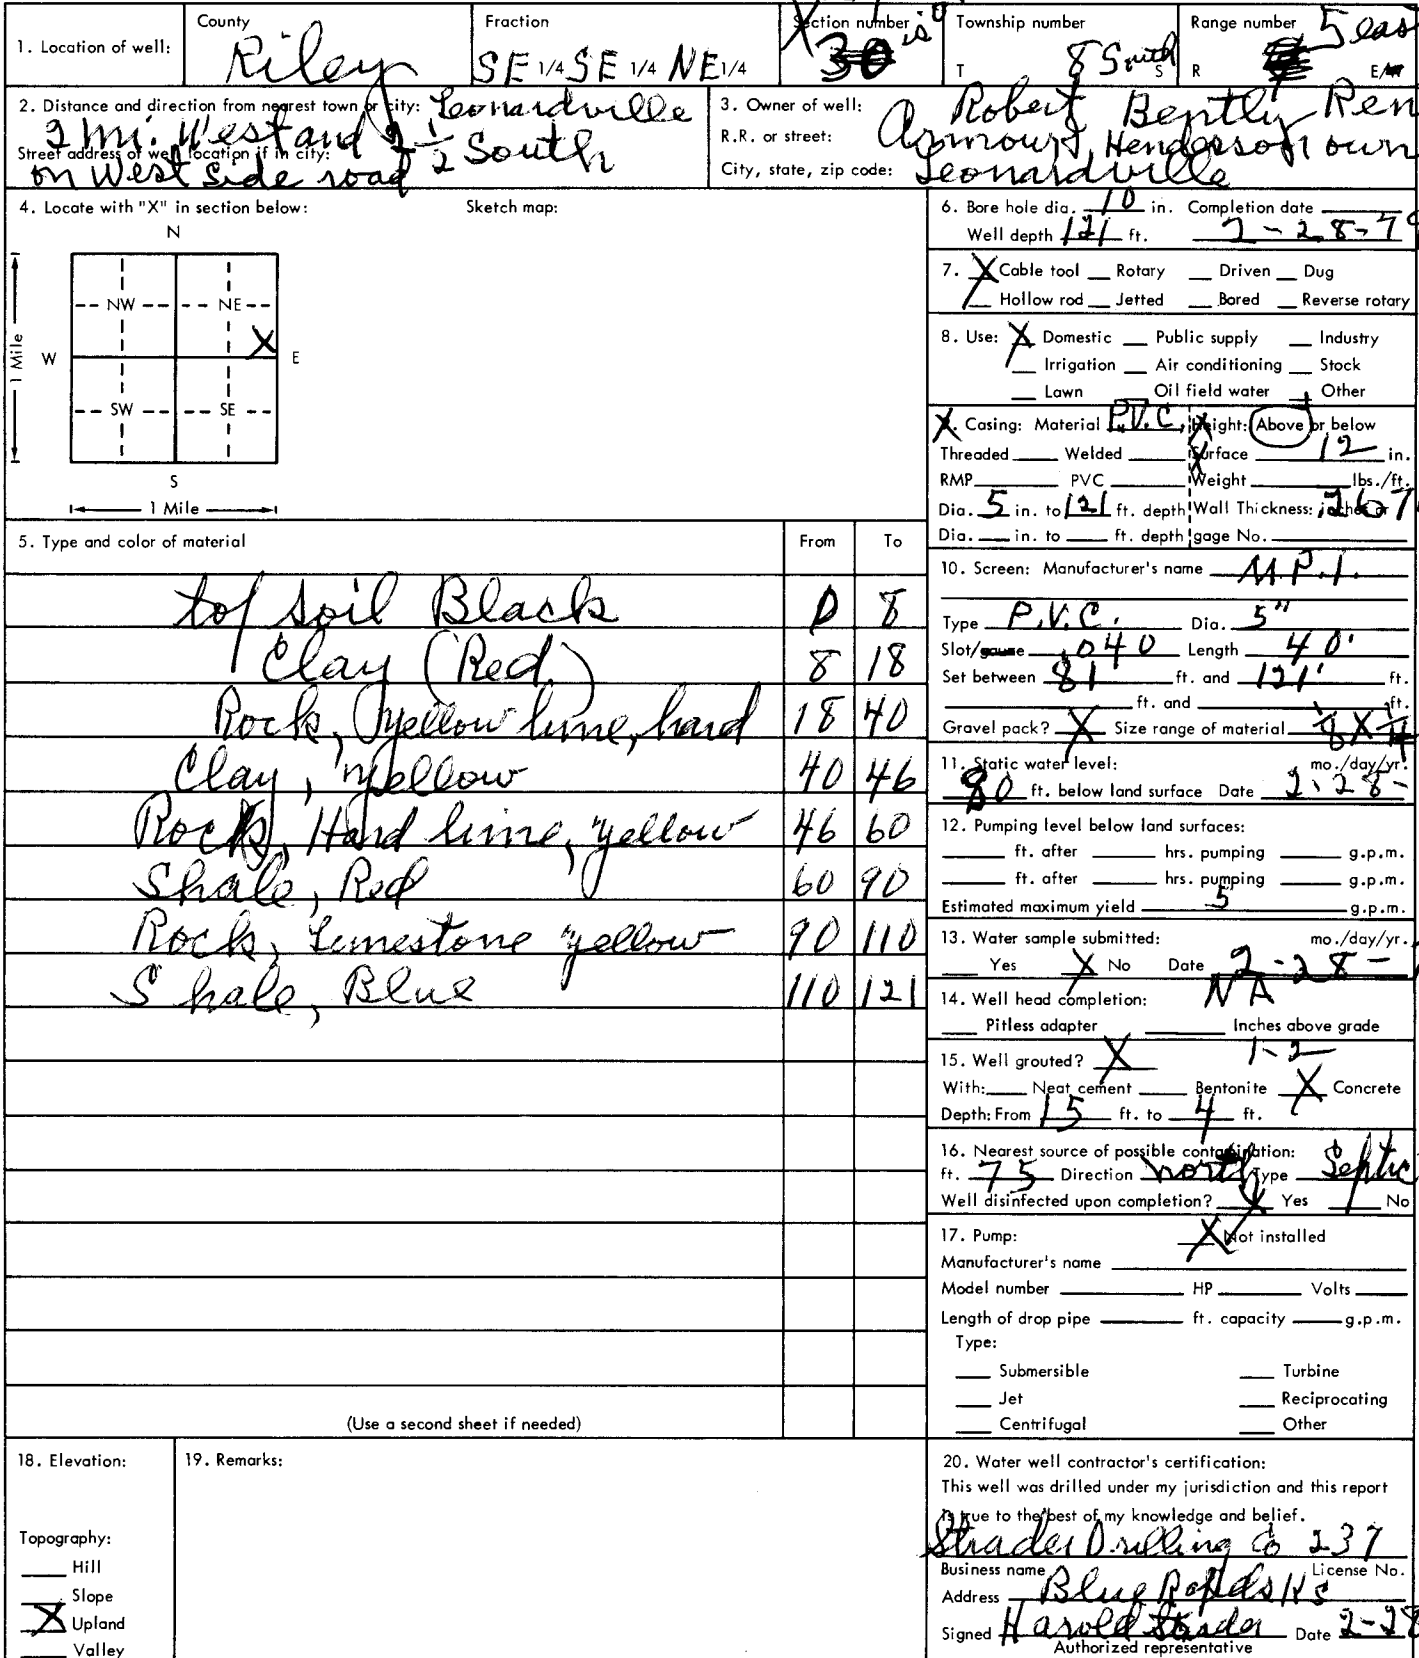 County Fraction Section number Township number Range number
1. Location of well: Riley SE 1/4 SE 1/4 NE 1/4 30 is T 8 South S R 5 eas E/W
2. Distance and direction from nearest town or city: Leonardville
2 mi. West and 2 1/2 South
Street address of well location if in city:
on West side road
3. Owner of well: Robert Bently Ren
R.R. or street: Armour, Henderson own
City, state, zip code: Leonardville
4. Locate with "X" in section below: Sketch map:
N
NW NE
X
W E
1 Mile
SW SE
S
1 Mile
5. Type and color of material From To
top soil Black 0 8
Clay (Red) 8 18
Rock, yellow lime, hard 18 40
Clay, yellow 40 46
Rock, Hard lime, yellow 46 60
Shale, Red 60 90
Rock, Limestone yellow 90 110
Shale, Blue 110 121
(Use a second sheet if needed)
6. Bore hole dia. 10 in. Completion date
Well depth 121 ft. 2-28-79
7. X Cable tool Rotary Driven Dug
Hollow rod Jetted Bored Reverse rotary
8. Use: X Domestic Public supply Industry
Irrigation Air conditioning Stock
Lawn Oil field water Other
9. Casing: Material P.V.C. Height: Above or below
Threaded Welded Surface 12 in.
RMP PVC Weight lbs./ft.
Dia. 5 in. to 121 ft. depth Wall Thickness: inches or 267
Dia. in. to ft. depth gage No.
10. Screen: Manufacturer's name M.P.I.
Type P.V.C. Dia. 5"
Slot/gauze .040 Length 40'
Set between 81 ft. and 121' ft.
ft. and ft.
Gravel pack? X Size range of material 1/8 X 1/4
11. Static water level: mo./day/yr.
80 ft. below land surface Date 2-28-
12. Pumping level below land surfaces:
ft. after hrs. pumping g.p.m.
ft. after hrs. pumping g.p.m.
Estimated maximum yield 5 g.p.m.
13. Water sample submitted: mo./day/yr.
Yes X No Date 2-28-
14. Well head completion: NA
Pitless adapter Inches above grade
15. Well grouted? X 1-2
With: Neat cement Bentonite X Concrete
Depth: From 15 ft. to 4 ft.
16. Nearest source of possible contamination:
ft. 75 Direction north Type Septic
Well disinfected upon completion? X Yes No
17. Pump: X Not installed
Manufacturer's name
Model number HP Volts
Length of drop pipe ft. capacity g.p.m.
Type:
Submersible Turbine
Jet Reciprocating
Centrifugal Other
18. Elevation:
Topography:
Hill
Slope
X Upland
Valley
19. Remarks:
20. Water well contractor's certification:
This well was drilled under my jurisdiction and this report
is true to the best of my knowledge and belief.
Strader Drilling Co 237
Business name License No.
Address Blue Rapids Ks
Signed Harold Strader Date 2-28
Authorized representative